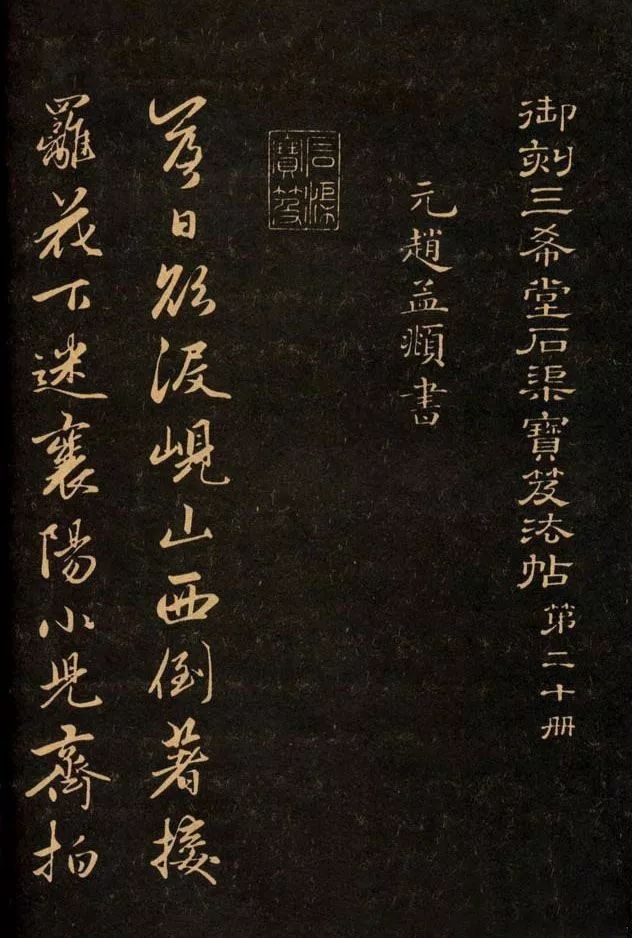 御刻三希堂石渠寶笈法帖 第二十册
元趙孟頫書
石渠寶笈
落日欲沒峴山西倒著接
䍦花下迷襄陽小兒齊拍